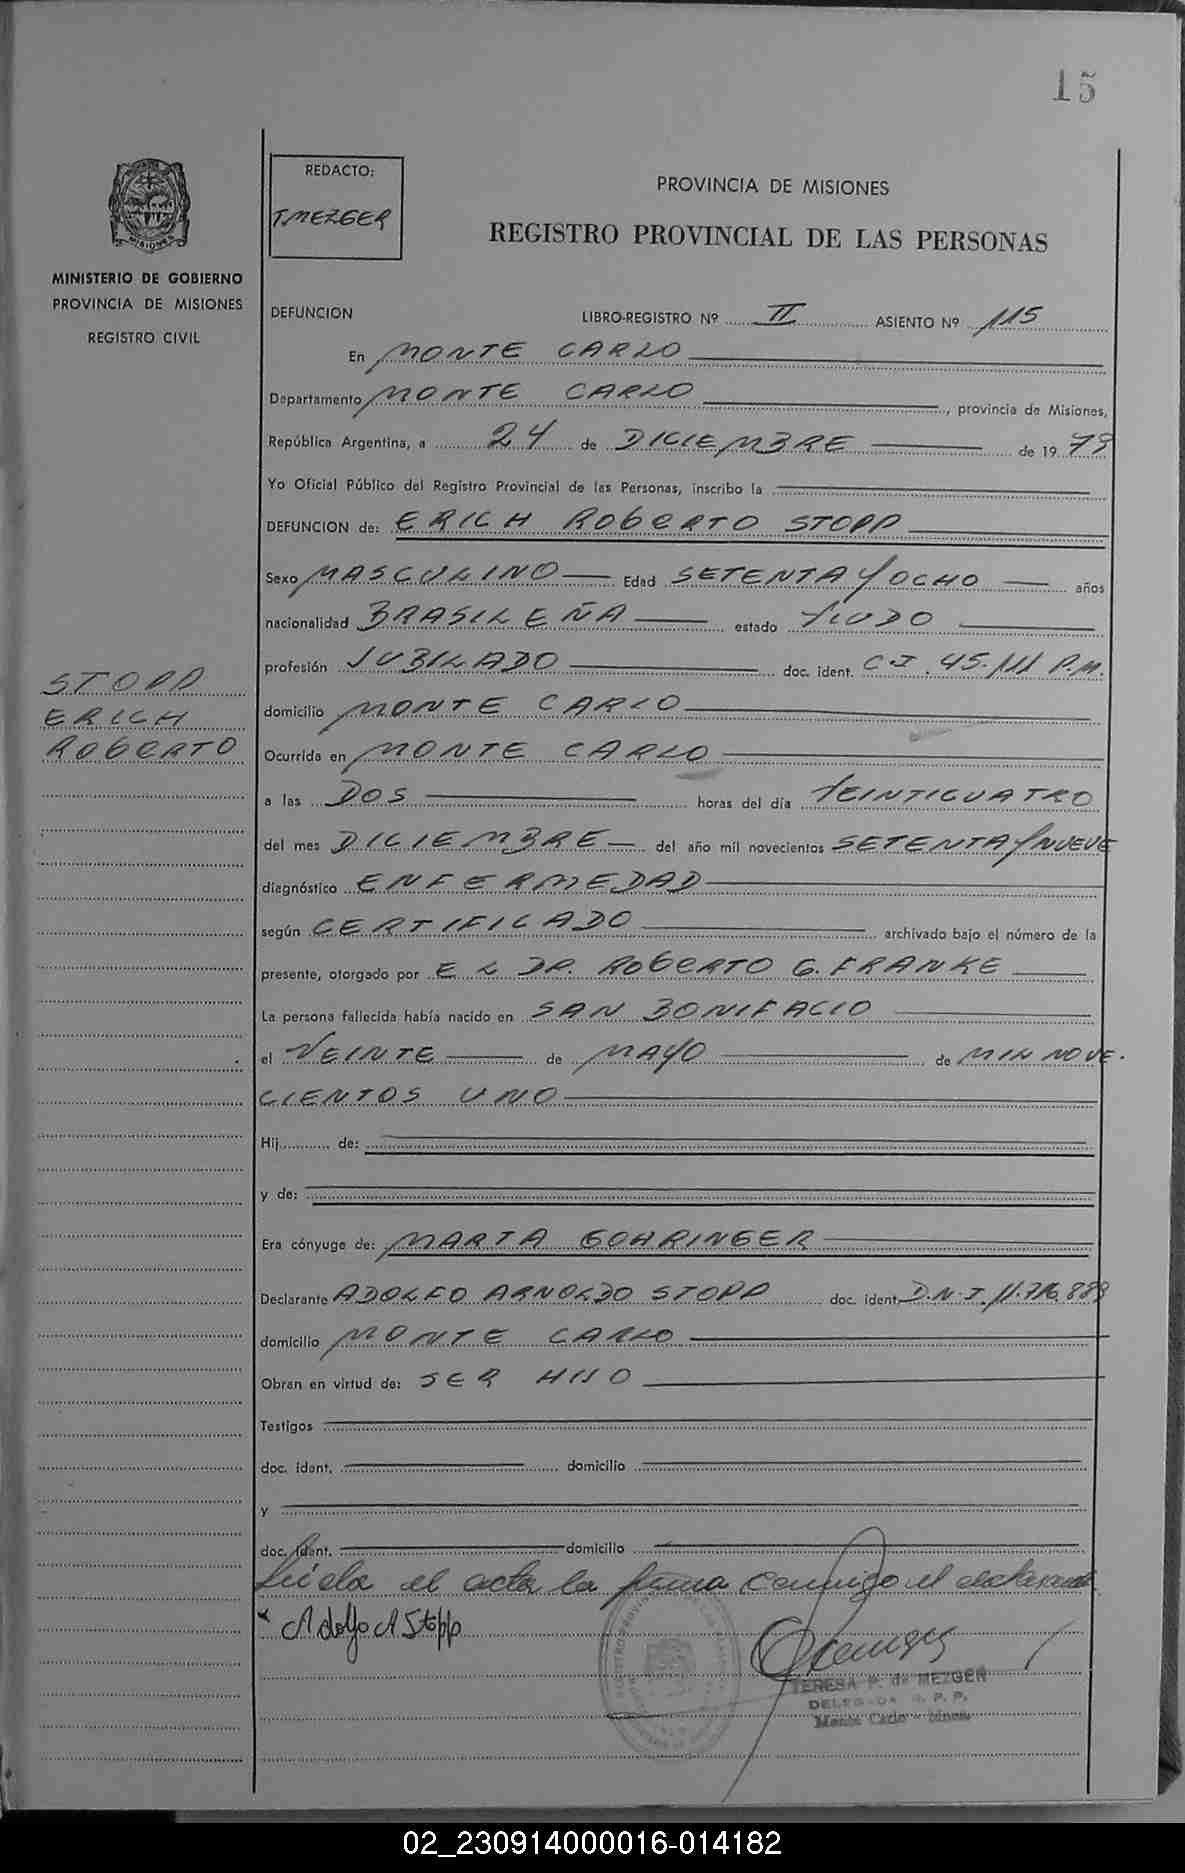 15
REDACTO:
T. MEZGER
PROVINCIA DE MISIONES
REGISTRO PROVINCIAL DE LAS PERSONAS
MISIONES
MINISTERIO DE GOBIERNO
PROVINCIA DE MISIONES
REGISTRO CIVIL
DEFUNCION LIBRO-REGISTRO Nº II ASIENTO Nº 115
En MONTE CARLO
Departamento MONTE CARLO, provincia de Misiones,
República Argentina, a 24 de DICIEMBRE de 19 79
Yo Oficial Público del Registro Provincial de las Personas, inscribo la
DEFUNCION de: ERICH ROBERTO STOPP
Sexo MASCULINO Edad SETENTA Y OCHO años
nacionalidad BRASILEÑA estado VIUDO
profesión JUBILADO doc. ident. C.I. 45.111 P.M.
STOPP
ERICH
ROBERTO
domicilio MONTE CARLO
Ocurrida en MONTE CARLO
a las DOS horas del día VEINTICUATRO
del mes DICIEMBRE del año mil novecientos SETENTA Y NUEVE
diagnóstico ENFERMEDAD
según CERTIFICADO archivado bajo el número de la
presente, otorgado por EL DR. ROBERTO G. FRANKE
La persona fallecida había nacido en SAN BONIFACIO
el VEINTE de MAYO de MIL NOVE.
CIENTOS UNO
Hij de:
y de:
Era cónyuge de: MARTA GOHRINGER
Declarante ADOLFO ARNOLDO STOPP doc. ident. D.N.I. 11.716.839
domicilio MONTE CARLO
Obran en virtud de: SER HIJO
Testigos
doc. ident. domicilio
y
doc. ident. domicilio
Leída el acta la firma conmigo el declarante
Adolfo A Stopp
TERESA P. de MEZGER
DELEGADA R. P. P.
Monte Carlo - Mnes.
02_230914000016-014182